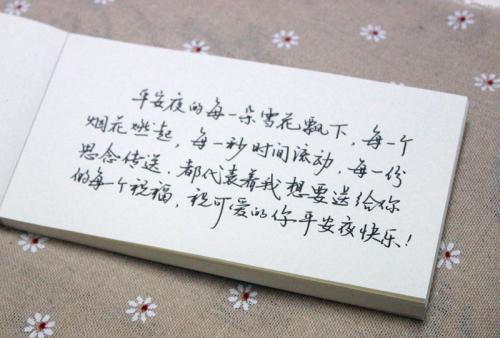 平安夜的每一朵雪花飘下，每一个
烟花燃起，每一秒时间流动，每一份
思念传送，都代表着我想要送给你
的每个祝福，祝可爱的你平安夜快乐！